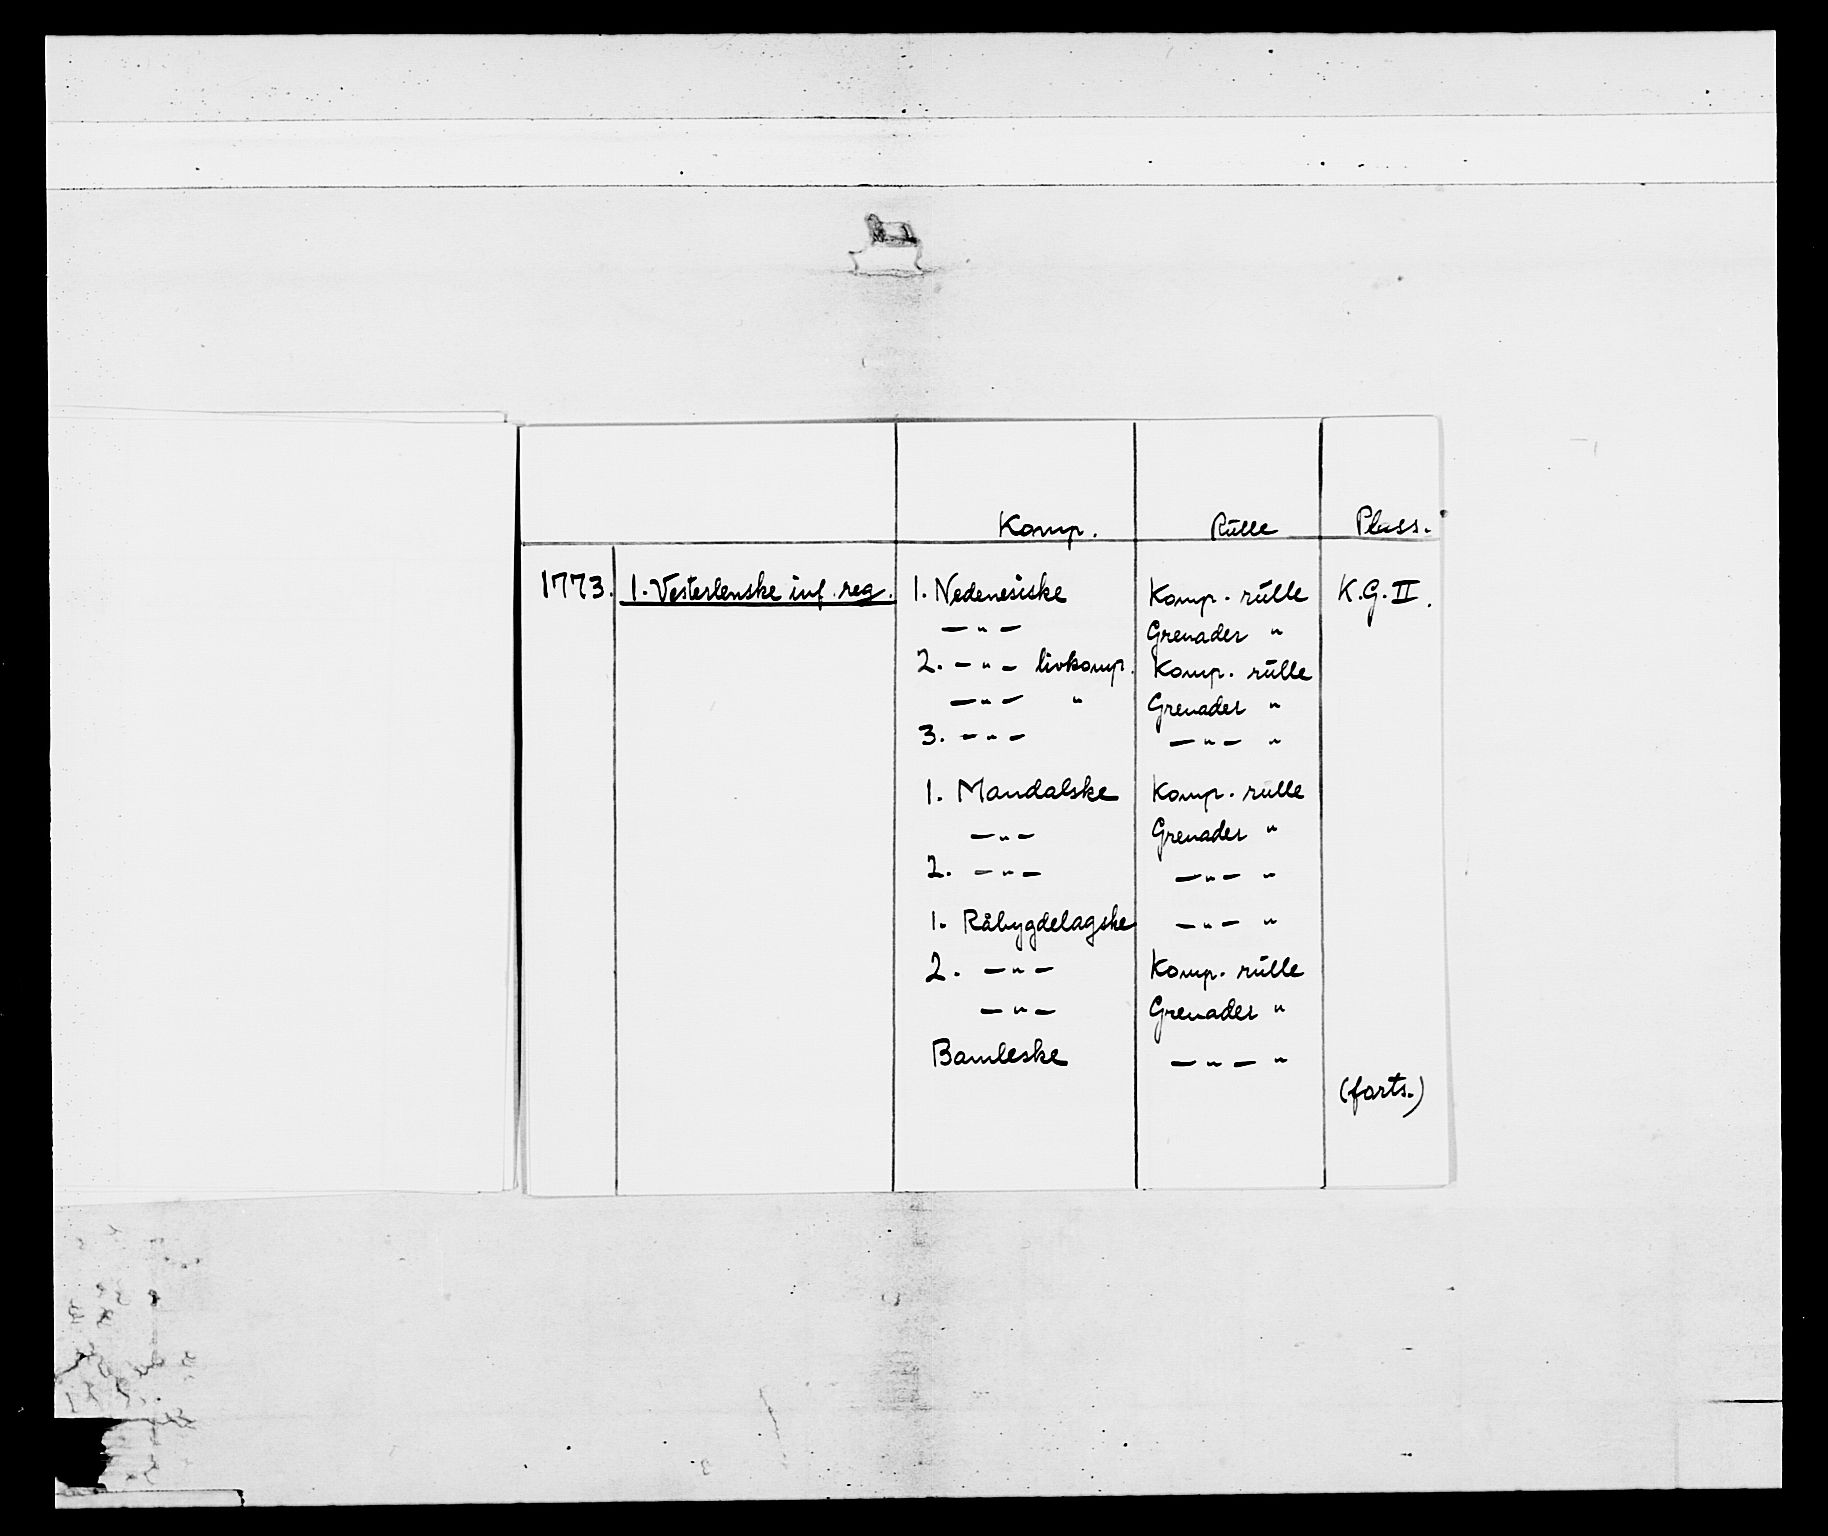 Komp. Rulle Plass.
1773. 1. Vesterlenske inf. reg. 1. Nedenesiske Komp. rulle K.G. II.
— " — Grenader "
2. — " — livkomp. Komp. rulle
— " — " Grenader "
3. — " — — " — "
1. Mandalske Komp. rulle
— " — Grenader "
2. — " — — " — "
1. Råbygdelagske — " — "
2. — " — Komp. rulle
— " — Grenader "
Bamleske — " — "
(forts.)